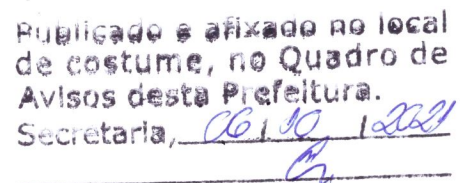 Publicado e afixado no local
de costume, no Quadro de
Avisos desta Prefeitura.
Secretaria, 06 / 10 / 2021